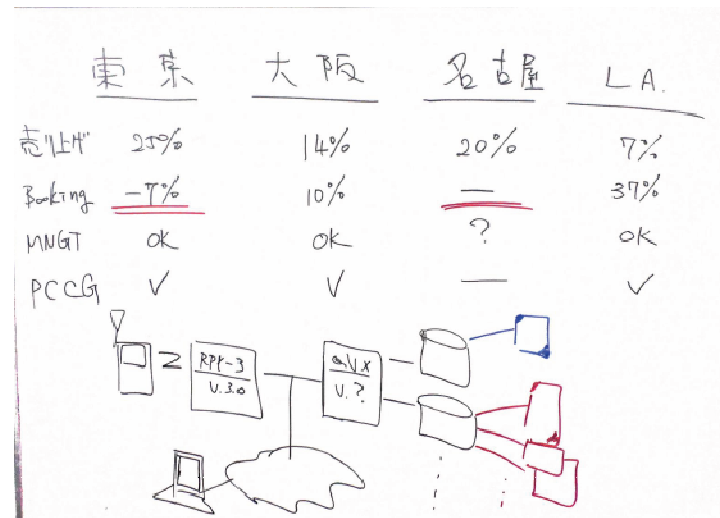 東京 大阪 名古屋 L.A.
売り上げ 25% 14% 20% 7%
Booking -7% 10% — 37%
MNGT OK OK ? OK
PCCG ✓ ✓ — ✓
RPT-3
V.3.0
V.?